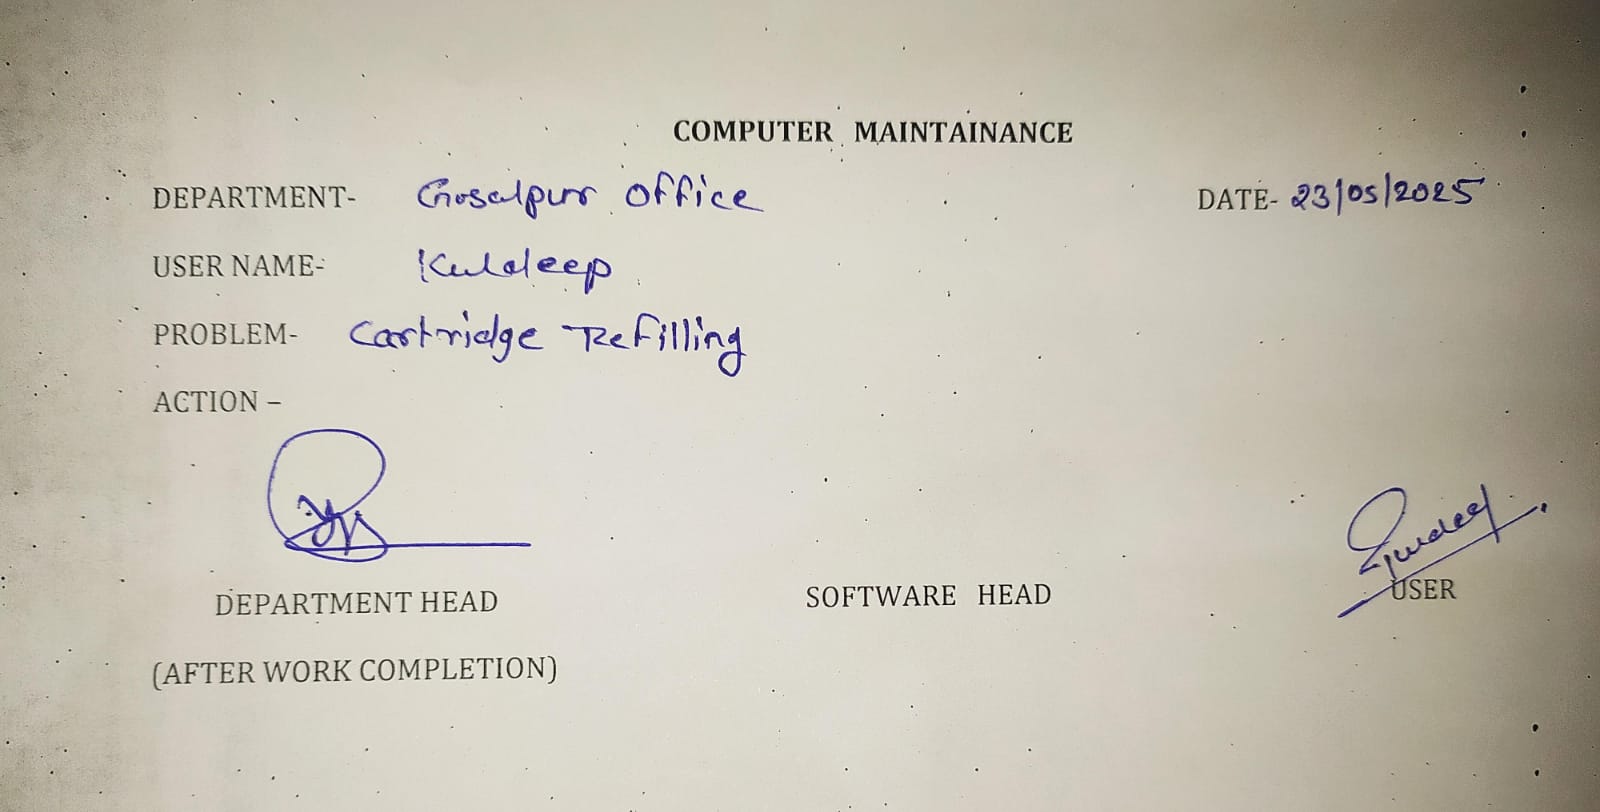 COMPUTER MAINTAINANCE
DEPARTMENT- Gosalpur Office DATE- 23/05/2025
USER NAME- Kuldeep
PROBLEM- Cartridge Refilling
ACTION –
DEPARTMENT HEAD SOFTWARE HEAD USER
(AFTER WORK COMPLETION)